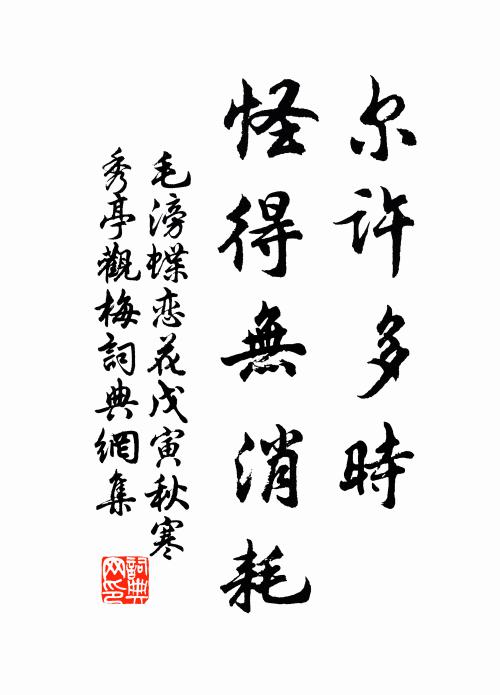 尔许多時
怪得無消耗
毛滂蝶恋花戊寅秋寒
秀亭觀梅詞典網集
詞典网印